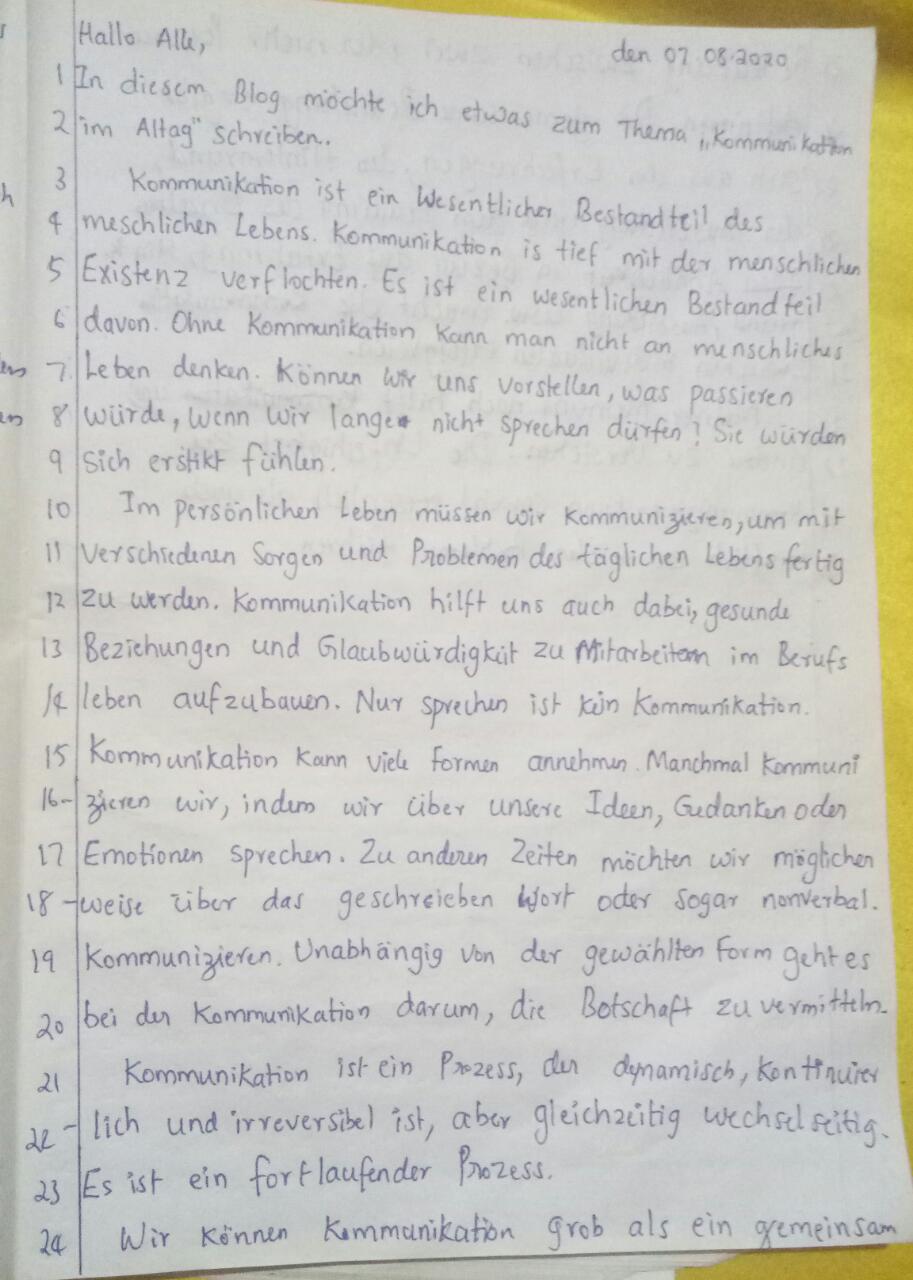 Hallo Alle,
den 07.08.2020
1 In diesem Blog möchte ich etwas zum Thema „Kommunikation
2 im Altag" schreiben.
3 Kommunikation ist ein Wesentlicher Bestandteil des
4 meschlichen Lebens. Kommunikation is tief mit der menschlichen
5 Existenz verflochten. Es ist ein wesentlichen Bestandteil
6 davon. Ohne Kommunikation kann man nicht an menschliches
7 Leben denken. Können wir uns vorstellen, was passieren
8 würde, wenn wir lange nicht sprechen dürfen? Sie würden
9 sich erstikt fühlen.
10 Im persönlichen Leben müssen wir kommunizieren, um mit
11 verschiedenen Sorgen und Problemen des täglichen Lebens fertig
12 zu werden. Kommunikation hilft uns auch dabei, gesunde
13 Beziehungen und Glaubwürdigkeit zu Mitarbeitern im Berufs
14 leben aufzubauen. Nur sprechen ist kein Kommunikation.
15 Kommunikation kann viele formen annehmen. Manchmal kommuni
16- zieren wir, indem wir über unsere Ideen, Gedanken oder
17 Emotionen sprechen. Zu anderen Zeiten möchten wir möglichen
18 -weise über das geschreieben Wort oder sogar nonverbal.
19 kommunizieren. Unabhängig von der gewählten Form geht es
20 bei der Kommunikation darum, die Botschaft zu vermitteln.
21 Kommunikation ist ein Prozess, der dynamisch, kontinuier
22 - lich und irreversibel ist, aber gleichzeitig wechselseitig.
23 Es ist ein fortlaufender Prozess.
24 Wir können Kommunikation grob als ein gemeinsam